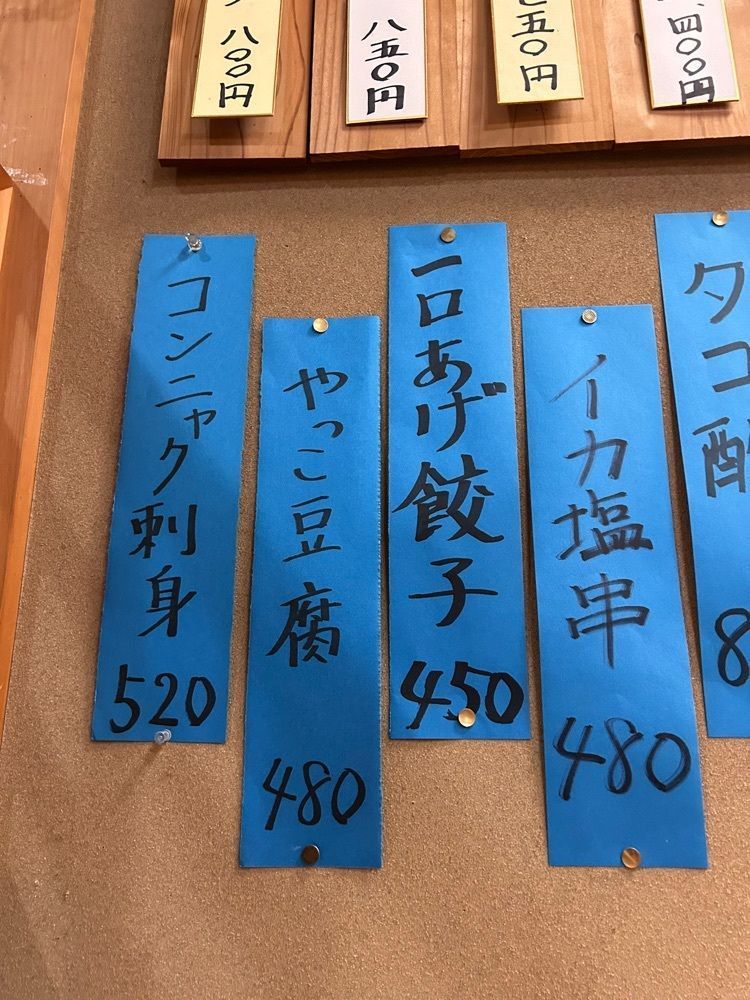 八〇〇円
八五〇円
五〇円
四〇〇円
コンニャク刺身
520
やっこ豆腐
480
一口あげ餃子
450
イカ塩串
480
タコ酢
8